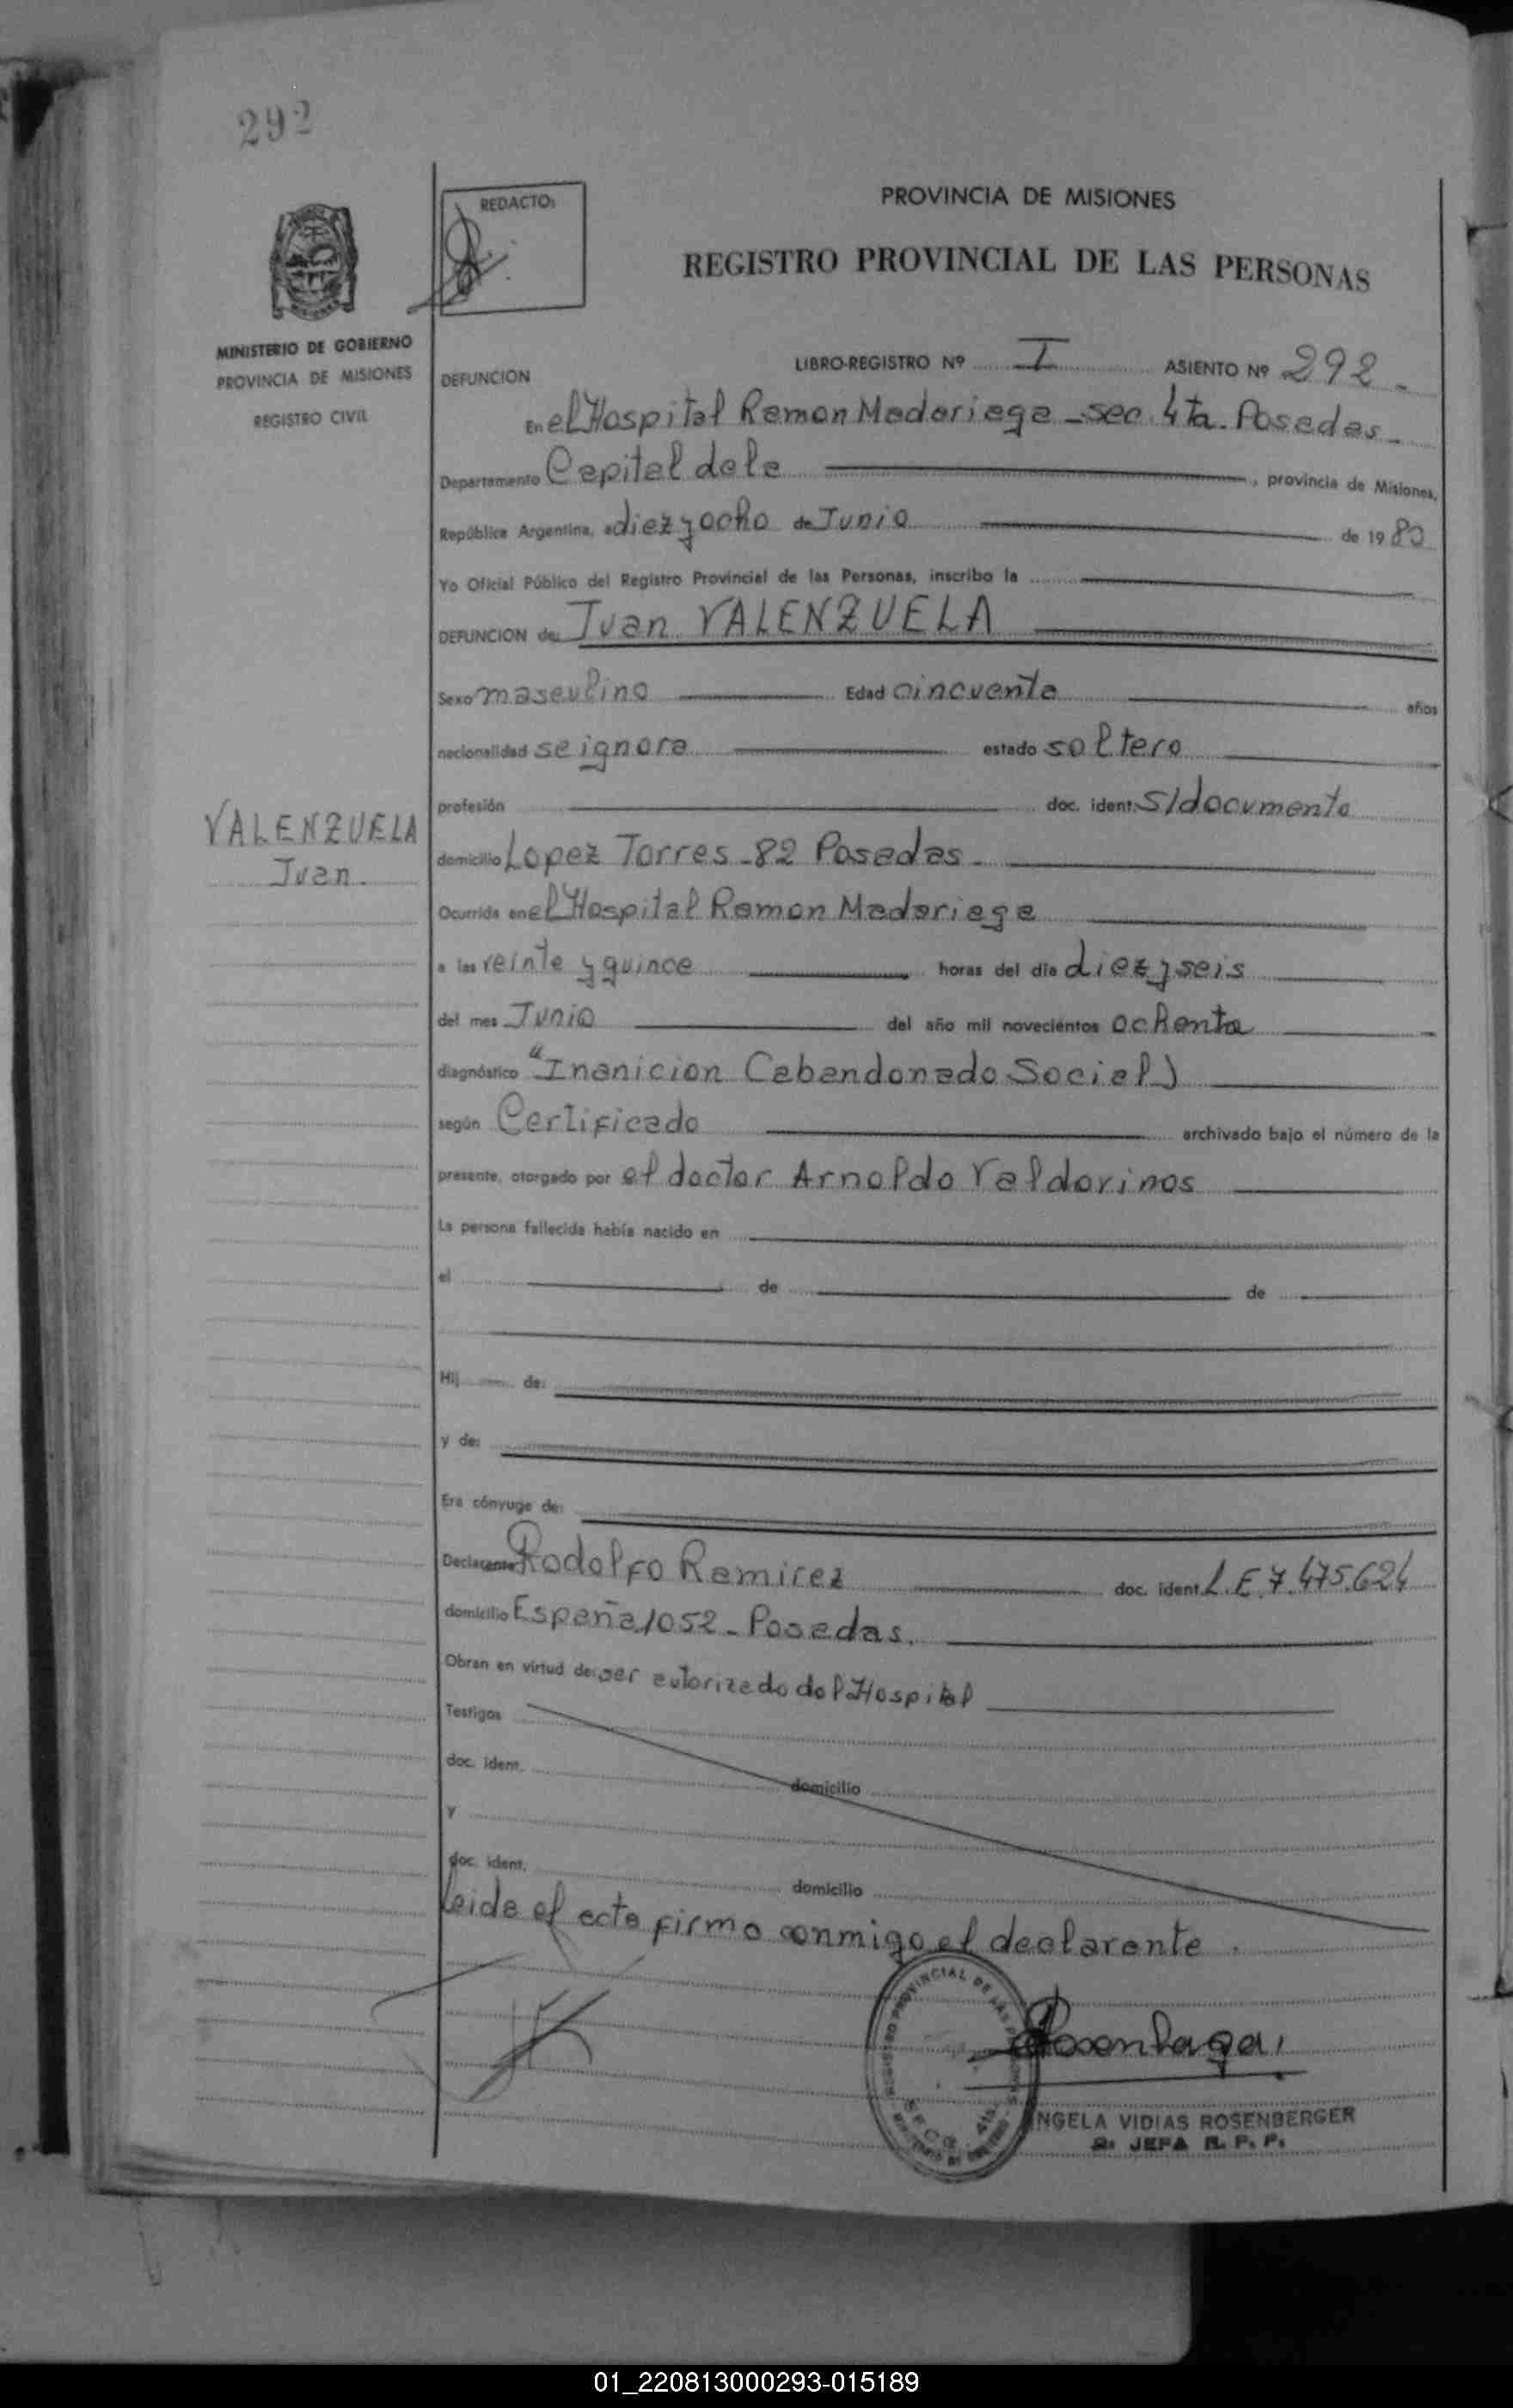 292
REDACTO:
PROVINCIA DE MISIONES
REGISTRO PROVINCIAL DE LAS PERSONAS
MINISTERIO DE GOBIERNO
PROVINCIA DE MISIONES
REGISTRO CIVIL
LIBRO-REGISTRO Nº I ASIENTO Nº 292
DEFUNCION
En el Hospital Ramon Madariaga - sec. 4ta. Posadas
Departamento Capital de la, provincia de Misiones,
República Argentina, a diez y ocho de Junio de 1980
Yo Oficial Público del Registro Provincial de las Personas, inscribo la
DEFUNCION de: Juan VALENZUELA
Sexo masculino Edad cincuenta años
nacionalidad se ignora estado soltero
profesión doc. ident. S/documento
VALENZUELA
Juan
domicilio Lopez Torres - 82 Posadas
Ocurrida en el Hospital Ramon Madariaga
a las veinte y quince horas del día diez y seis
del mes Junio del año mil novecientos ochenta
diagnóstico "Inanicion (abandonado Social)
según Certificado archivado bajo el número de la
presente, otorgado por el doctor Arnoldo Valdovinos
La persona fallecida había nacido en
el de de
Hij de:
y de:
Era cónyuge de:
Declarante Rodolfo Ramirez doc. ident. L.E. 7.475.624
domicilio España 1052 - Posadas.
Obran en virtud de: ser autorizado del Hospital
Testigos
doc. ident. domicilio
y
doc. ident. domicilio
leida el acta firma conmigo el declarante.
REGISTRO PROVINCIAL DE LAS PERSONAS
ANGELA VIDIAS ROSENBERGER
2ª JEFA R. P. P.
01_220813000293-015189